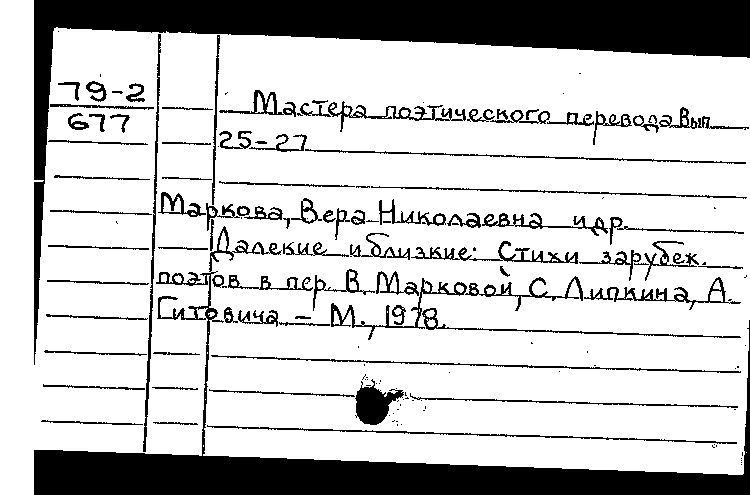 79-2
677
Мастера поэтического перевода Вып
25-27
Маркова, Вера Николаевна и др.
Далекие и близкие: Стихи зарубеж.
поэтов в пер. В. Марковой, С. Липкина, А.
Гитовича. - М., 1978.